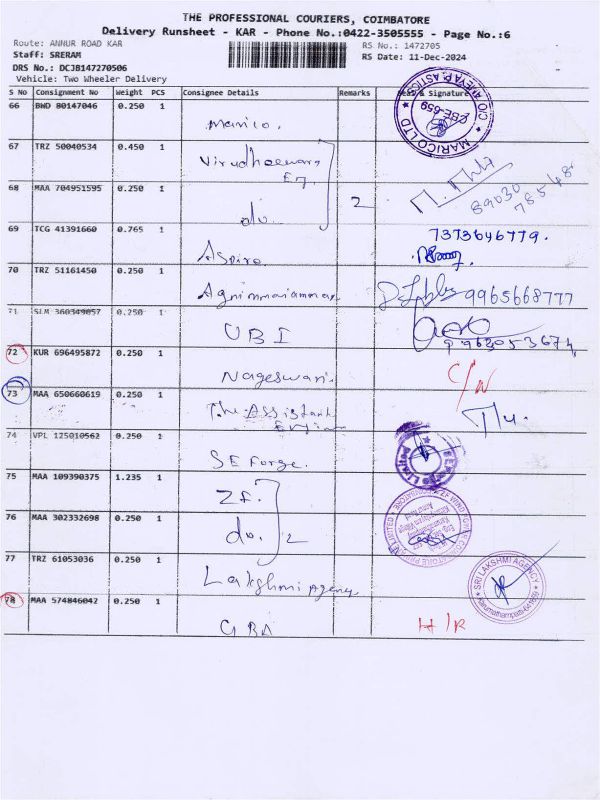 THE PROFESSIONAL COURIERS, COIMBATORE
Delivery Runsheet - KAR - Phone No.:0422-3505555 - Page No.:6
Route: ANNUR ROAD KAR RS No.: 1472705
Staff: SRERAM RS Date: 11-Dec-2024
DRS No.: DCJB147270506
Vehicle: Two Wheeler Delivery
S No Consignment No Weight PCS Consignee Details Remarks & Signature
66 BWD 80147046 0.250 1
Marico.
MARICO LTD
CBE-659
67 TRZ 50040534 0.450 1
68 MAA 704951595 0.250 1
do. 2
69 TCG 41391660 0.765 1 7373646779.
Aspiro.
70 TRZ 51161450 0.250 1
9965668777
71 SLM 360349057 0.250 1
UBI
9962053674
72 KUR 696495872 0.250 1
Nageswari. C/N
73 MAA 650660619 0.250 1
The Assistant
74 VPL 125010562 0.250 1
SE Forge.
75 MAA 109390375 1.235 1
ZF.
76 MAA 302332698 0.250 1
do. 2
77 TRZ 61053036 0.250 1
Lakshmi Agency
SRI LAKSHMI AGENCY
78 MAA 574846042 0.250 1
GBA H/R